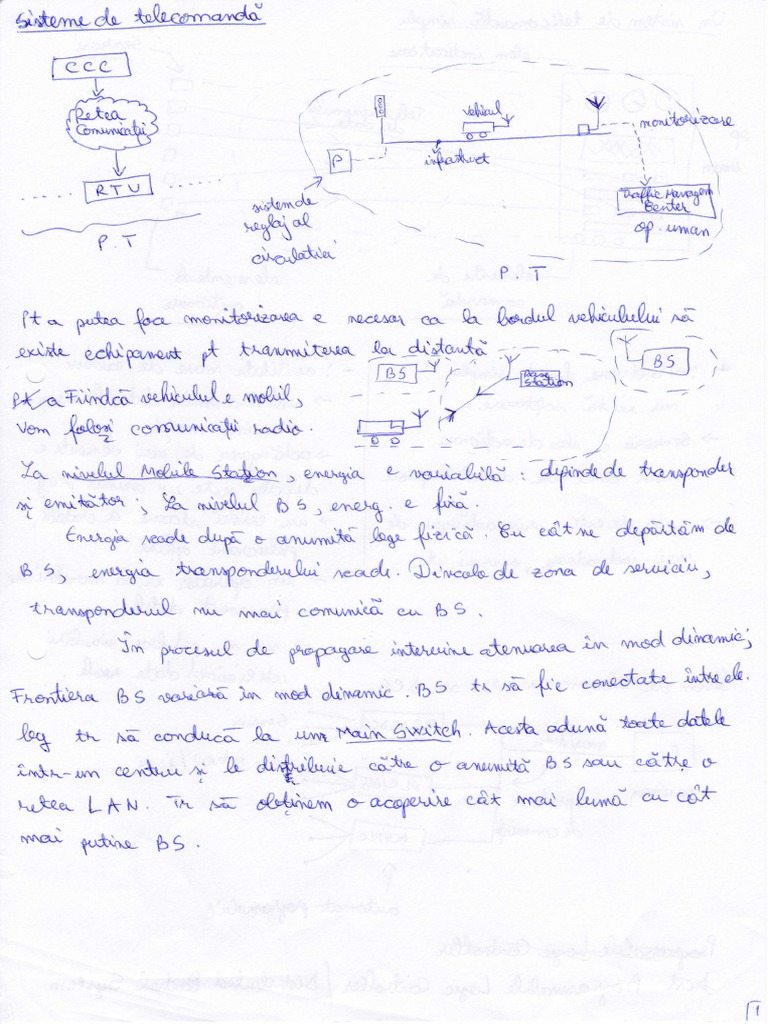 Sisteme de telecomandă
CCC
Retea
Comunicații
RTU
P.T
vehicul
infrastruct
P
monitorizare
Traffic Managem
Center
op. uman
sistem de
reglaj al
circulatiei
P.T
Pt a putea face monitorizarea e necesar ca la bordul vehiculului să
existe echipament pt tranmiterea la distantă
BS
Base
Station
BS
Fiindcă vehiculul e mobil,
vom folosi comunicații radio.
La nivelul Mobile Station, energia e variabilă: depinde de transponder
și emitător; La nivelul BS, energ. e fixă.
Energia scade după o anumită lege fizică. Cu cât ne depărtăm de
BS, energia transponderului scade. Dincolo de zona de serviciu,
transponderul nu mai comunică cu BS.
În procesul de propagare intervine atenuarea în mod dinamic;
Frontiera BS variară în mod dinamic. BS tr să fie conectate între ele.
leg tr să conducă la un Main Switch. Acesta adună toate datele
într-un centru și le distribuie către o anumită BS sau către o
retea LAN. Tr să obținem o acoperire cât mai bună cu cât
mai putine BS.
1